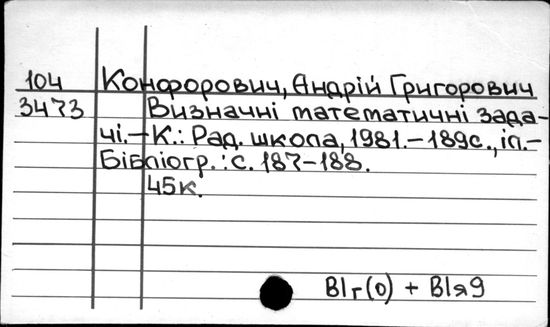 104 Конфорович, Андрій Григорович
3473 Визначні математичні зада-
чі.–К.: Рад. школа, 1981.–189с., іл.–
Бібліогр.: с. 187–188.
45к.
ВІг(0) + ВІя9